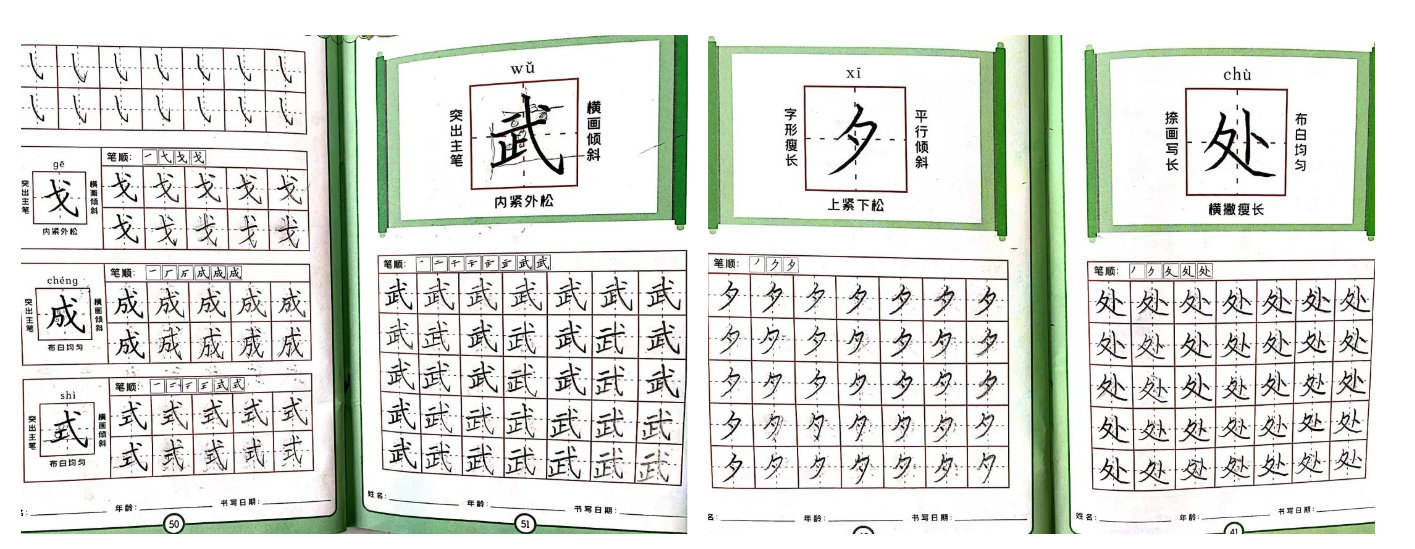 gē
突出主笔
戈
横画倾斜
内紧外松
笔顺:
戈 戈 戈 戈 戈
戈 戈 戈 戈 戈
chéng
突出主笔
成
横画倾斜
布白均匀
笔顺:
成 成 成 成 成
成 成 成 成 成
shì
突出主笔
式
横画倾斜
布白均匀
笔顺:
式 式 式 式 式
式 式 式 式 式
年龄: 书写日期:
50
wǔ
突出主笔
武
横画倾斜
内紧外松
笔顺:
武 武 武 武 武 武 武
武 武 武 武 武 武 武
武 武 武 武 武 武 武
武 武 武 武 武 武 武
武 武 武 武 武 武 武
姓名: 年龄: 书写日期:
51
xī
字形瘦长
夕
平行倾斜
上紧下松
笔顺:
夕 夕 夕 夕 夕 夕 夕
夕 夕 夕 夕 夕 夕 夕
夕 夕 夕 夕 夕 夕 夕
夕 夕 夕 夕 夕 夕 夕
夕 夕 夕 夕 夕 夕 夕
名: 年龄: 书写日期:
chù
捺画写长
处
布白均匀
横撇瘦长
笔顺:
处 处 处 处 处 处 处
处 处 处 处 处 处 处
处 处 处 处 处 处 处
处 处 处 处 处 处 处
处 处 处 处 处 处 处
姓名: 年龄: 书写日期:
41